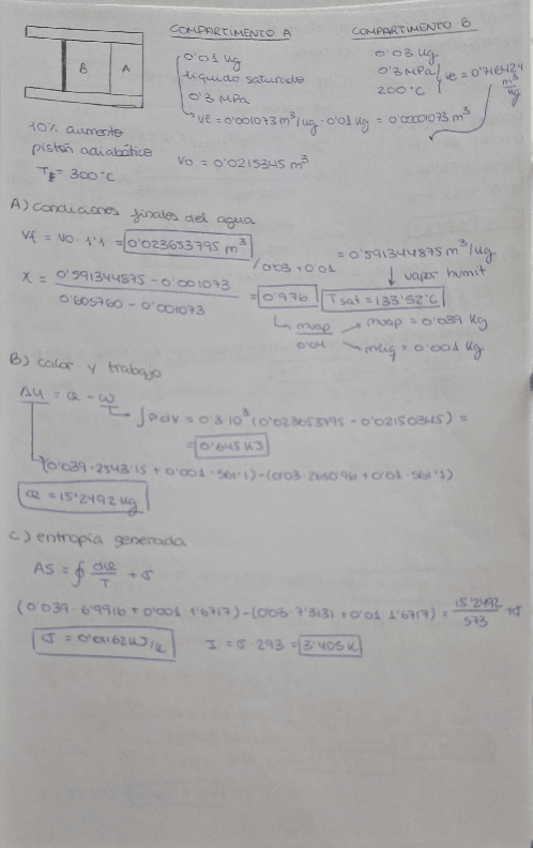 COMPARTIMENTO A
COMPARTIMENTO B
B A
0'01 kg
líquido saturado
0'3 MPa
0'03 kg
0'3 MPa
200°C
ve = 0'716424 m³/kg
ve = 0'001073 m³/kg · 0'01 kg = 0'00001073 m³
10% aumento
pistón adiabático
Tf = 300°C
V0 = 0'0215345 m³
A) condiciones finales del agua
Vf = V0 · 1'1 = 0'023653795 m³ / 0'03 + 0'01 = 0'591344875 m³/kg
vapor humit
X = 0'591344875 - 0'001073 / 0'605760 - 0'001073 = 0'976 Tsat = 133'52°C
mvap / 0'04 mvap = 0'039 kg
mliq = 0'001 kg
B) calor y trabajo
ΔU = Q - W
∫Pdv = 0'3·10³ (0'023653795 - 0'02150345) =
= 0'645 kJ
(0'039·2543'15 + 0'001·561'1) - (0'03·2650'96 + 0'01·561'1)
Q = 15'2492 kg
C) entropía generada
ΔS = ∮ dQ/T + σ
(0'039·6'9916 + 0'001 1'6717) - (0'03·7'3131 + 0'01 1'6717) = 15'2492/573 + σ
σ = 0'01162 kJ/K I = σ 293 = 3'405 K